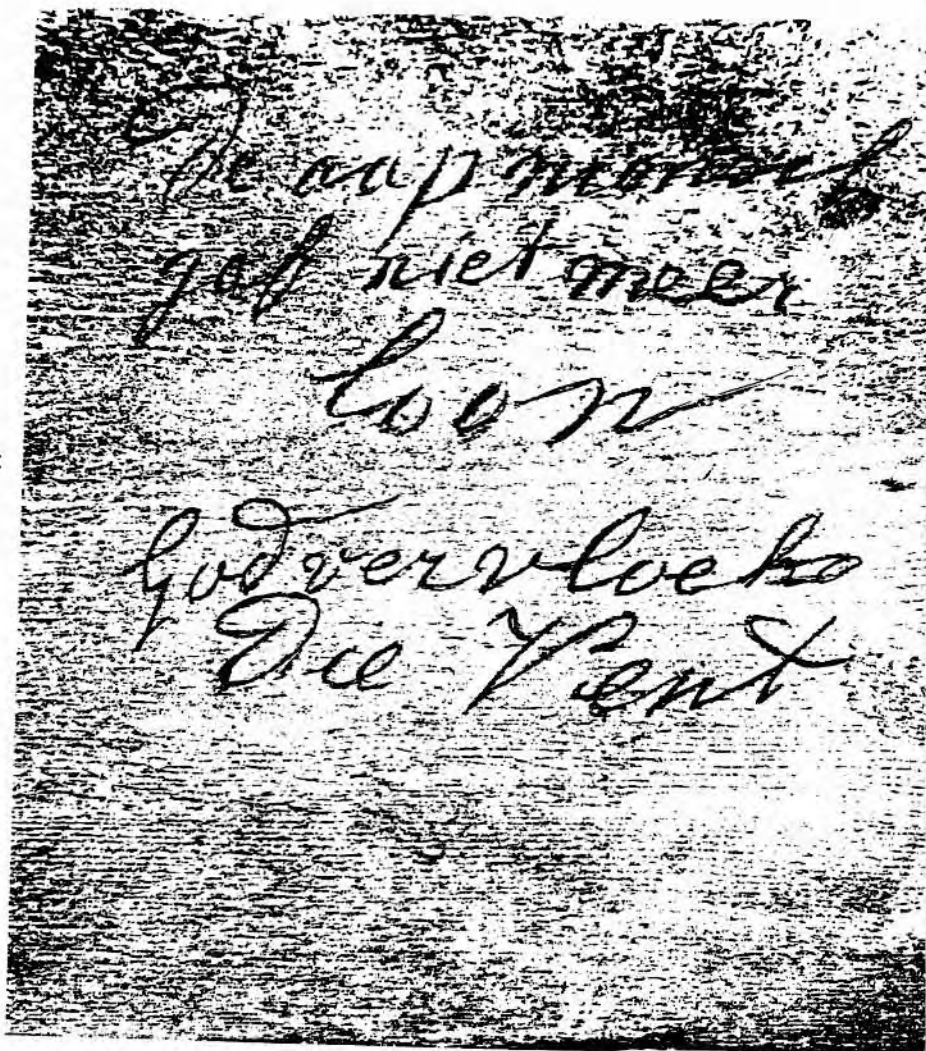 De aap
gaf niet meer
loon
God vervloeke
Die Vent